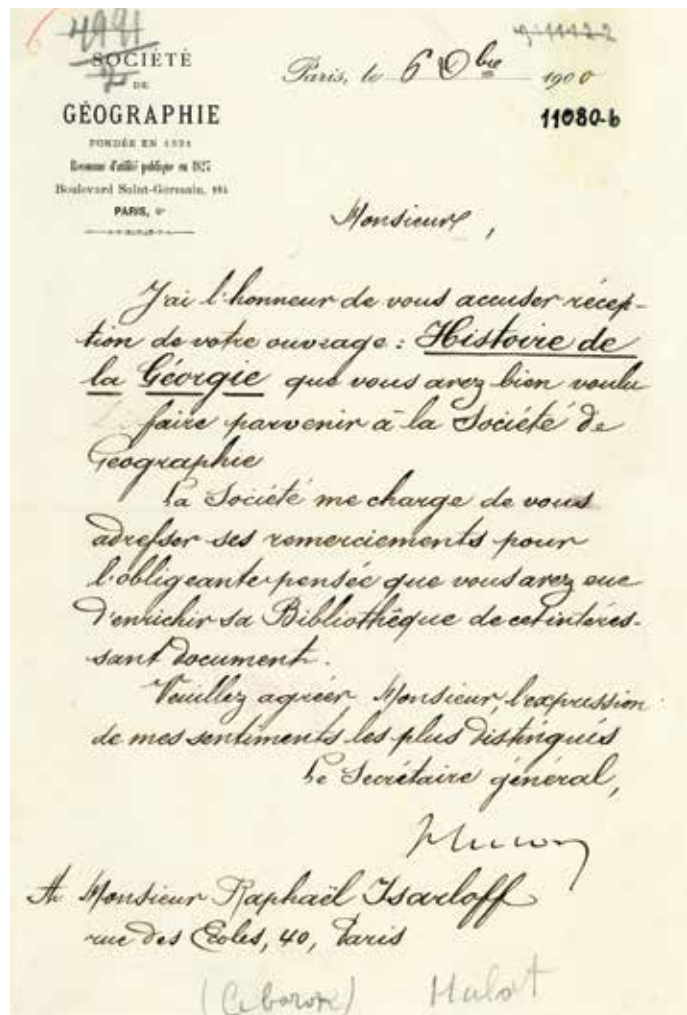 4991
2
SOCIÉTÉ
DE
GÉOGRAPHIE
FONDÉE EN 1821
Reconnue d'utilité publique en 1827
Boulevard Saint-Germain, 184
PARIS, 6e
Paris, le 6 Obre 1900
11080-b
Monsieur,
J'ai l'honneur de vous accuser récep-
tion de votre ouvrage : Histoire de
la Géorgie que vous avez bien voulu
faire parvenir à la Société de
Géographie
La Société me charge de vous
adresser ses remerciements pour
l'obligeante pensée que vous avez eue
d'enrichir sa Bibliothèque de cet intéres-
sant document.
Veuillez agréer, Monsieur, l'expression
de mes sentiments les plus distingués
Le Secrétaire général,
A Monsieur Raphaël Isarloff
rue des Ecoles, 40, Paris
(Le baron) Hulot